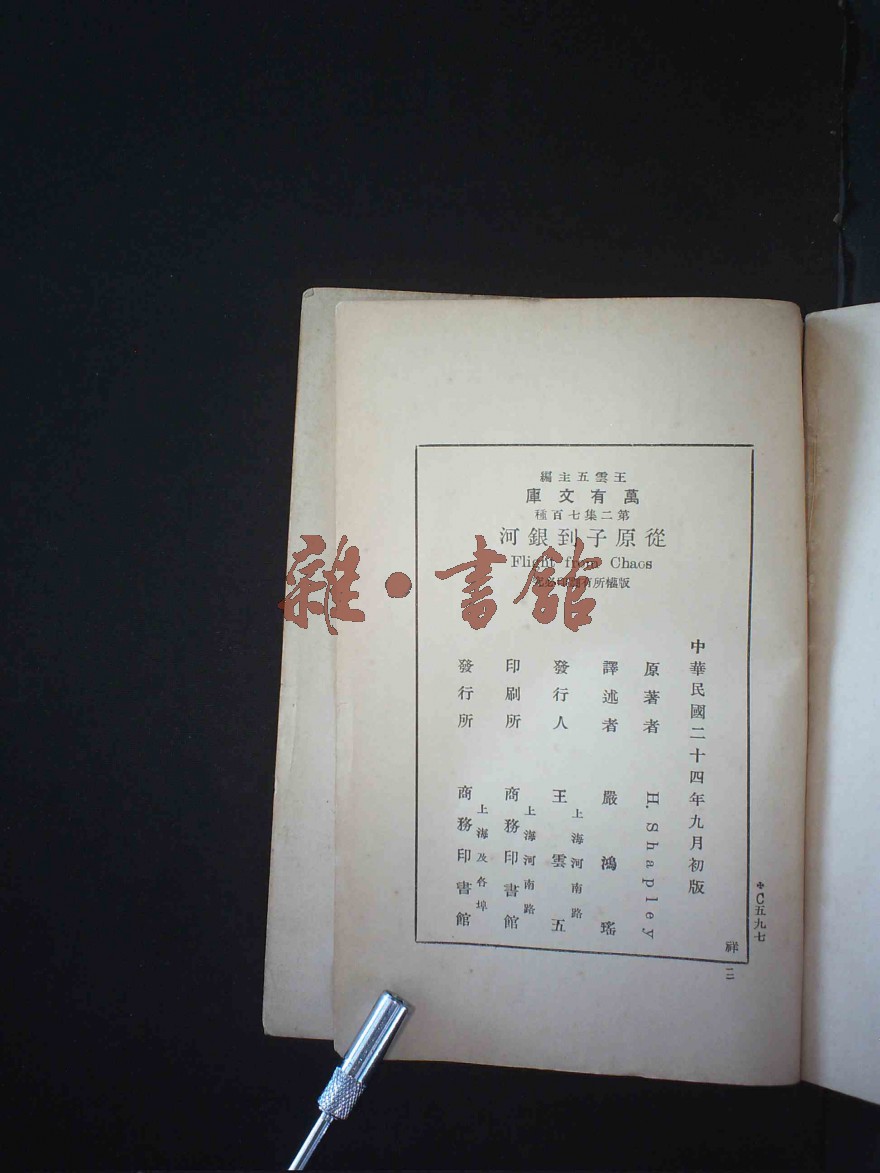 王雲五主編
萬有文庫
第二集七百種
從原子到銀河
Flight from Chaos
版權所有翻印必究
中華民國二十四年九月初版
原著者 H. Shapley
譯述者 嚴鴻瑤
上海河南路
發行人 王雲五
上海河南路
印刷所 商務印書館
上海及各埠
發行所 商務印書館
C五九七
祥
二
雜·書館